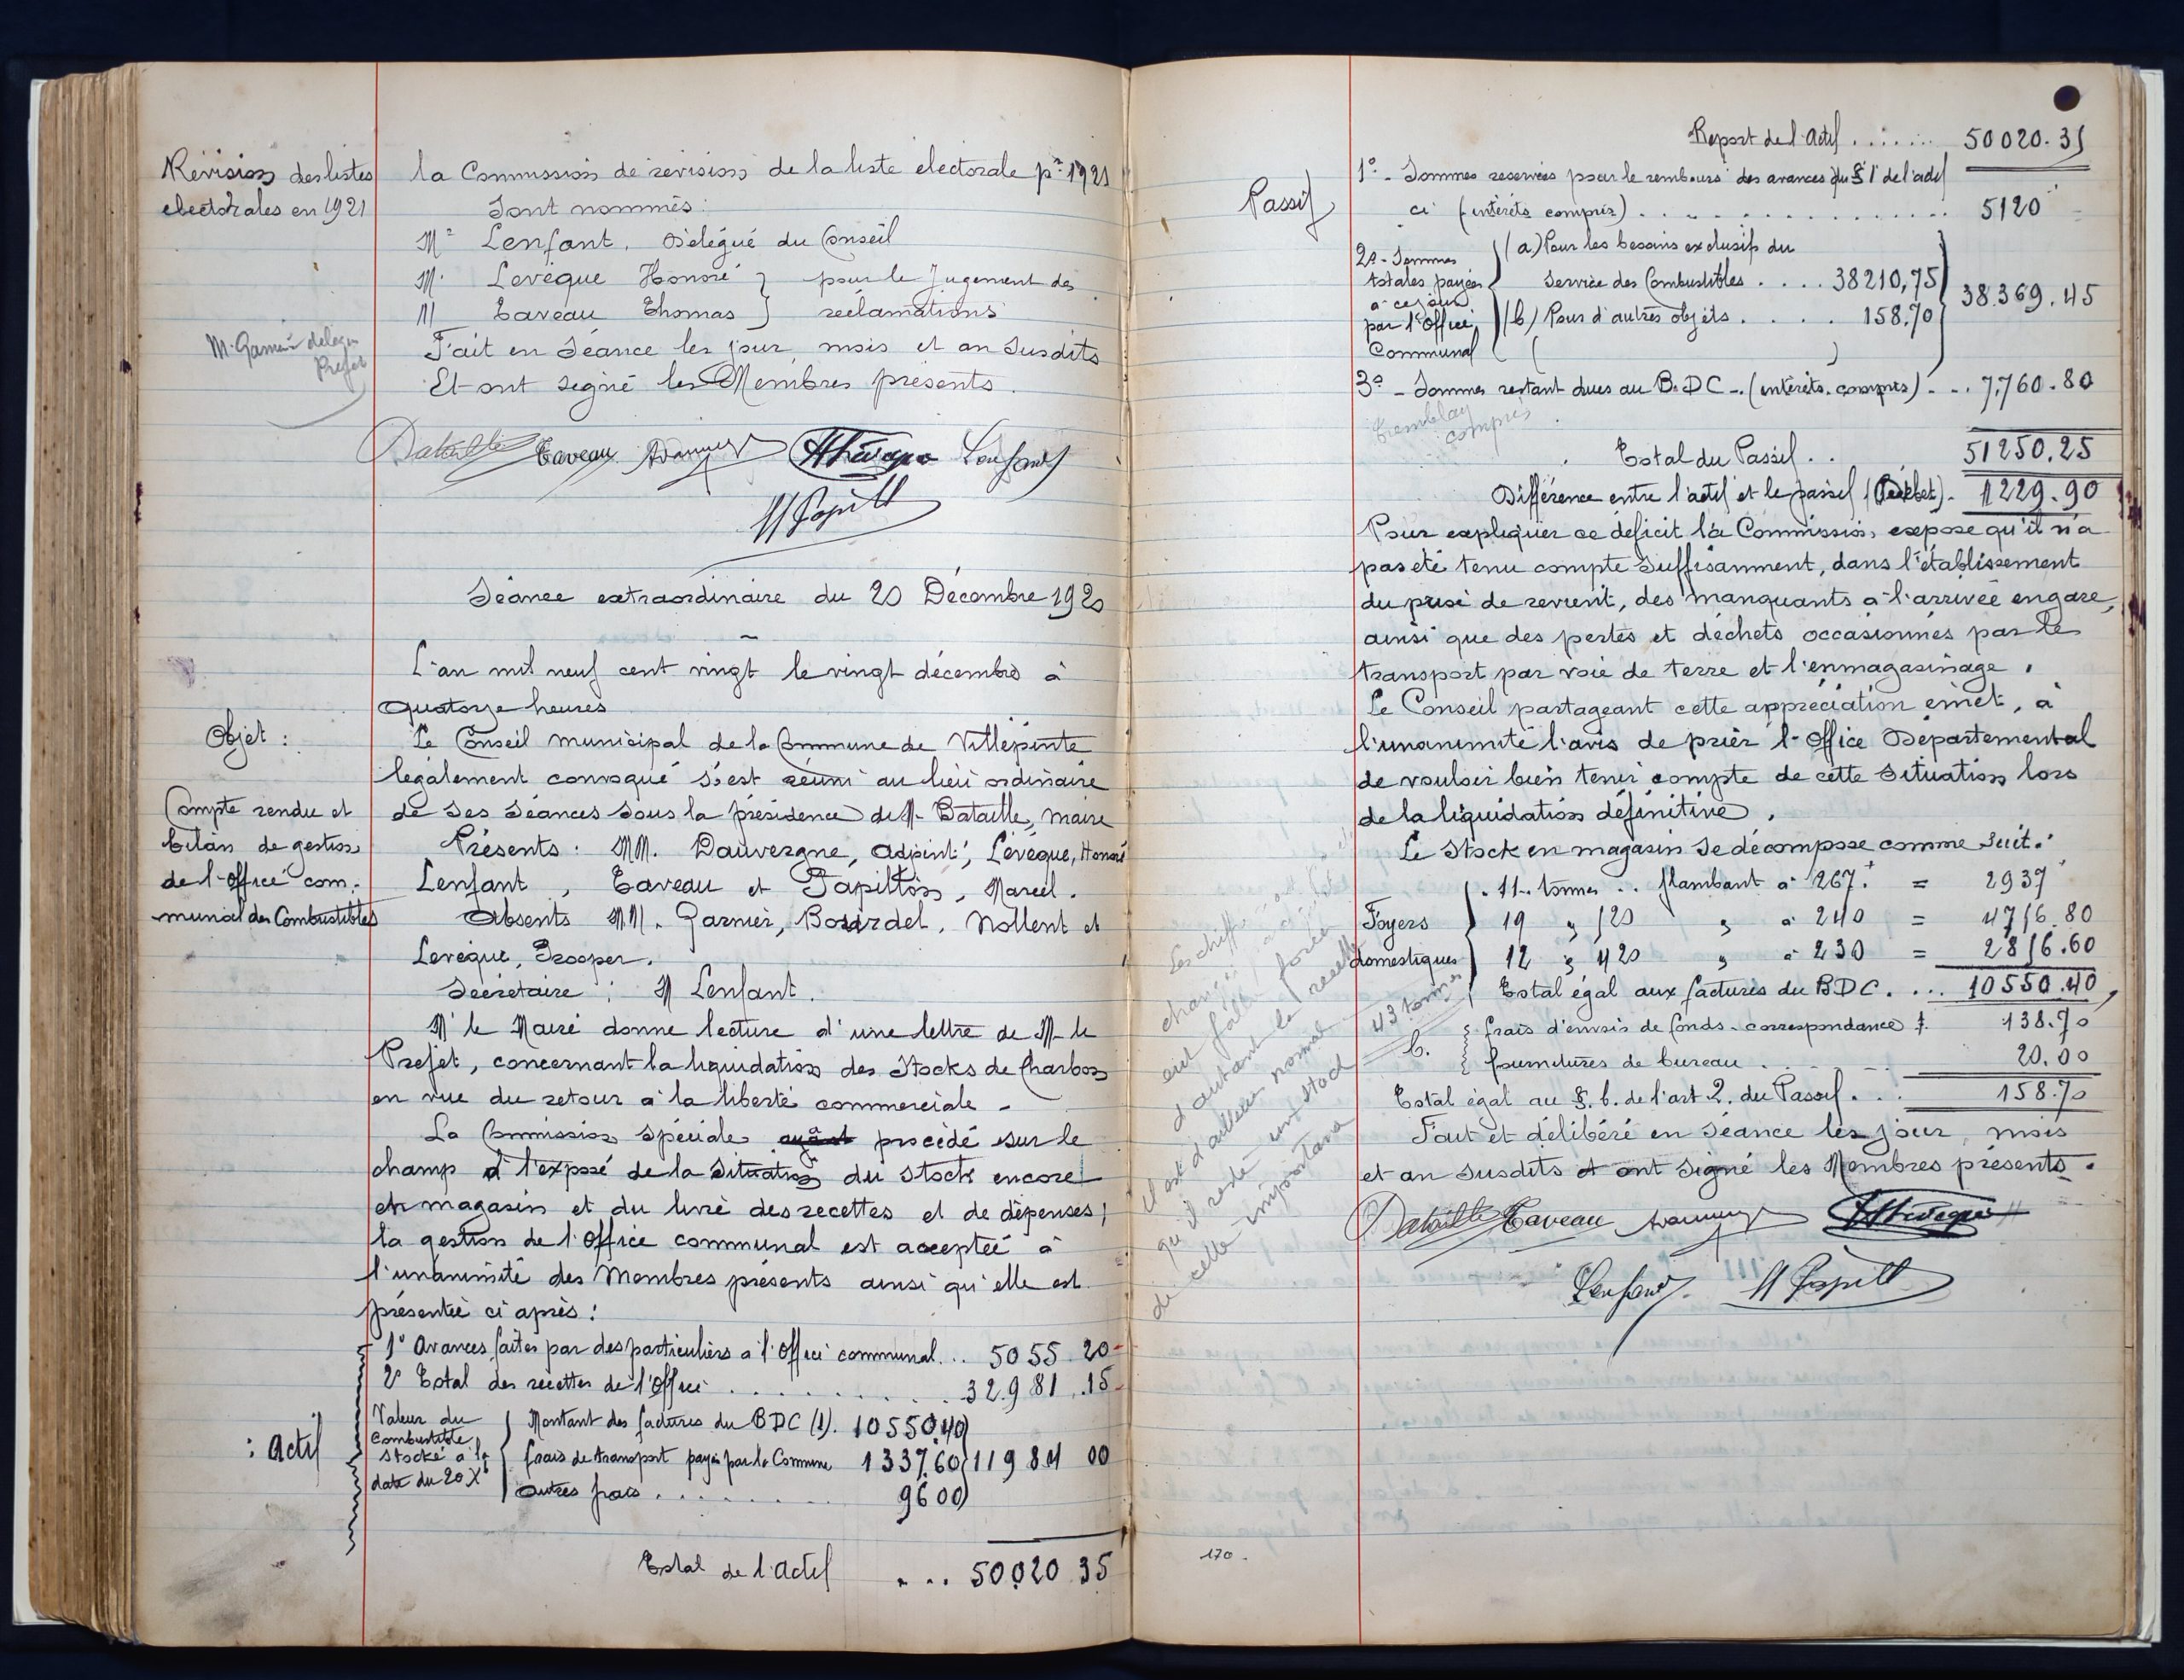 Révision des listes
électorales en 1921
la Commission de révision de la liste électorale pr 1921
Sont nommés :
Mr Lenfant, Délégué du Conseil
M. Levêque Honoré } pour le Jugement des
M Taveau Thomas } réclamations
M. Garnier délégué
Préfet
Fait en Séance les jour, mois et an Susdits
Et ont signé les Membres présents.
Bataille Taveau Lenfant
Séance extraordinaire du 20 Décembre 1920
L'an mil neuf cent vingt le vingt décembre à
quatorze heures
Objet :
Compte rendu et
bilan de gestion
de l'office com-
munal des Combustibles
Le Conseil municipal de la Commune de Villepinte
légalement convoqué s'est réuni au lieu ordinaire
de ses Séances sous la présidence de M. Bataille, maire
Présents : MM. Dauvergne, adjoint, Levêque, Honoré
Lenfant, Taveau et Papillon, Marcel.
Absents MM. Garnier, Bourdel, Nollent et
Levêque, Prosper.
Secrétaire : M Lenfant.
M' le Maire donne lecture d'une lettre de M. le
Préfet, concernant la liquidation des Stocks de Charbon
en vue du retour à la liberté commerciale -
La Commission Spéciale ayant procédé sur le
champ à l'exposé de la Situation du Stock encore
en magasin et du livre des recettes et de dépenses,
la gestion de l'Office communal est acceptée à
l'unanimité des Membres présents ainsi qu'elle est
présentée ci après :
: Actif
1° Avances faites par des particuliers à l'Office communal... 5055 20
2° Total des recettes de l'Office . . . . . 32.981.15
Valeur du
Combustible
stocké à la
date du 20 Xb
Montant des factures du BDC (1). 10550,40
frais de transport payés par la Commune 1337.60 } 11984 00
autres frais . . . . . 96 00
Total de l'Actif . . . 50020 35
Report de l'Actif . . . . . . 50020.35
Passif
1° - Sommes reservées pour le rembours' des avances du § 1' de l'actif
ci (intérêts compris) . . . . . 5120
2° - Sommes
totales payées
à ce jour
par l'Office
Communal
(a) Pour les besoins exclusifs du
Service des Combustibles . . . . 38210,75
(b) Pour d'autres objets . . . . 158.70
38.369.45
3° - Sommes restant dues au B.D.C -. (intérêts compris) . . . 7.760.80
Tremblay
compris
Total du Passif . . 51250.25
Différence entre l'actif et le passif . 1229.90
Pour expliquer ce déficit la Commission expose qu'il n'a
pas été tenu compte suffisamment, dans l'établissement
du prix de revient, des manquants à l'arrivée en gare,
ainsi que des pertes et déchets occasionnés par le
transport par voie de terre et l'enmagasinage.
Le Conseil partageant cette appréciation émet, à
l'unanimité l'avis de prier l'Office Départemental
de vouloir bien tenir compte de cette Situation lors
de la liquidation définitive.
Le Stock en magasin se décompose comme suit :
Foyers
domestiques
11 tonnes .. flambant à 267. = 2937
19 " 120 " à 240 = 4716.80
12 " 420 " à 230 = 2816.60
Total égal aux factures du BDC. . . . 10550.40
43 tonnes
b.
frais d'envois de fonds - correspondance 138.70
fournitures de bureau . . . . . 20.00
Total égal au §. b. de l'art 2. du Passif. . . 158.70
Fait et délibéré en Séance les jour, mois
et an Susdits et ont Signé les Membres présents.
Les chiffres
changés
eut fallu forcer
d'autant la recette
Il est d'ailleurs normal
qu'il reste un stock
de cette importance
Bataille Taveau
Lenfant
170.